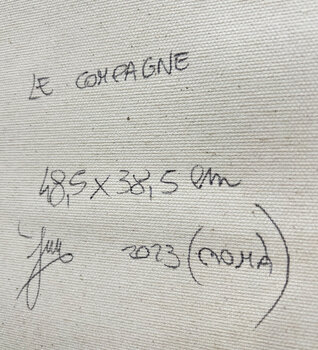 LE COMPAGNE
48,5 x 38,5 cm
2023 (ROMA)